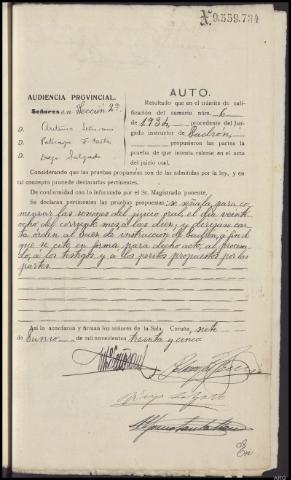 N.9.559.734
AUDIENCIA PROVINCIAL.
Señores en Sección 2ª.
D.
D. Pelicayo
D. Diego Salgado
AUTO.
Resultado que en el trámite de cali-
ficación del sumario núm. 6
de 1934 procedente del Juz-
gado instructor de Padrón,
propusieron las partes la
prueba de que intenta valerse en el acto
del juicio oral.
Considerando que las pruebas propuestas son de las admitidas por la ley, y en
tal concepto procede declararlas pertinentes.
De conformidad con lo informado por el Sr. Magistrado ponente.
Se declaran pertinentes las pruebas propuestas; se señala para co-
menzar las sesiones del juicio oral, el día veinte
ocho del corriente mes a las diez, y diríjase car-
ta orden al Juez de instrucción de Padrón, a fin de
que se cite en forma para dicho acto, al procesa-
do, a los testigos y a los peritos propuestos por las
partes.
Así lo acordaron y firman los señores de la Sala, Coruña siete
de Junio de mil novecientos treinta y cinco
Diego Salgado